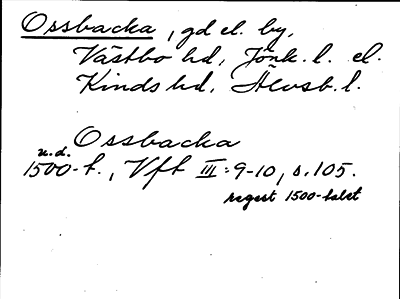 Ossbacka, gd el. by,
Västbo hd, Jönk. l. el.
Kinds hd, Älvsb. l.
Ossbacka
u.d.
1500-t., Vft III:9-10, s.105.
regest 1500-talet